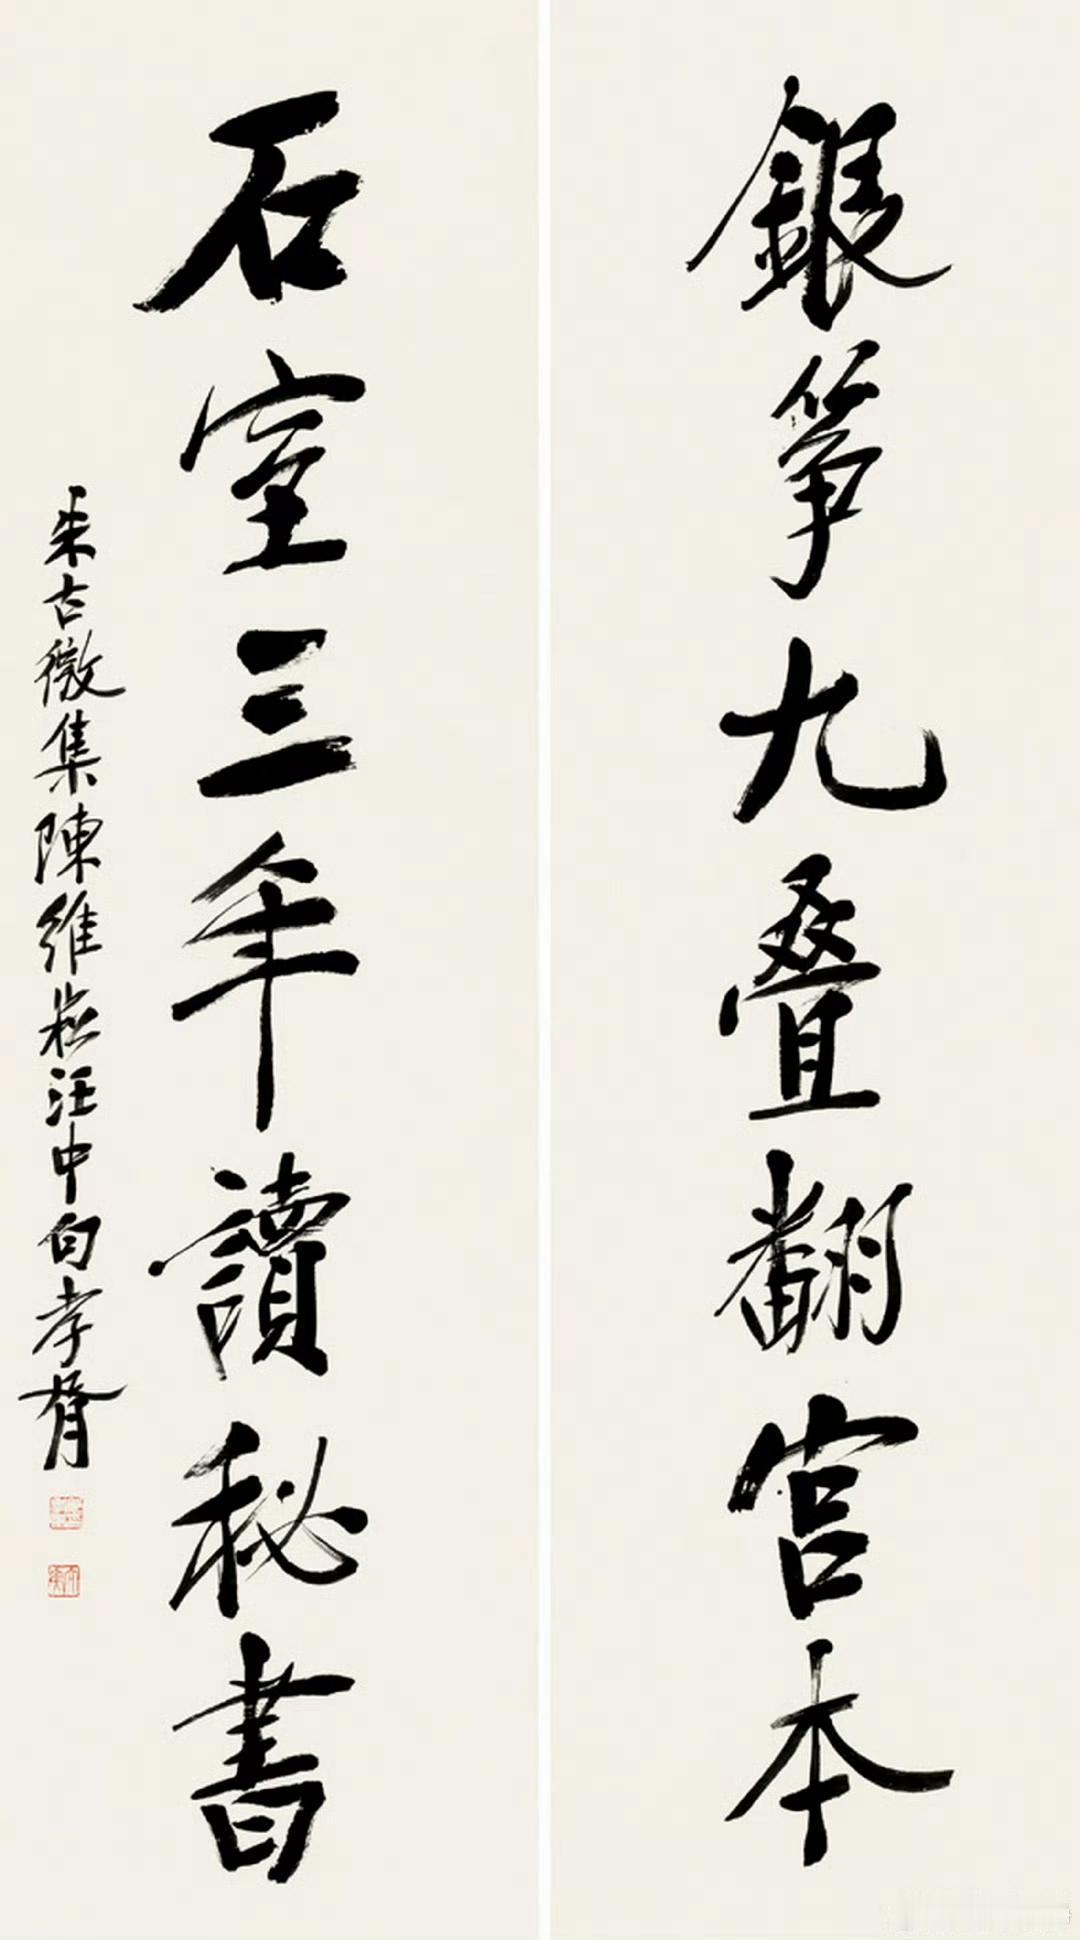 銀箏九叠翻宮本
石室三年讀秘書
朱古微集陳維崧汪中句孝胥